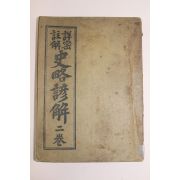 詳密註解
史略諺解 二卷